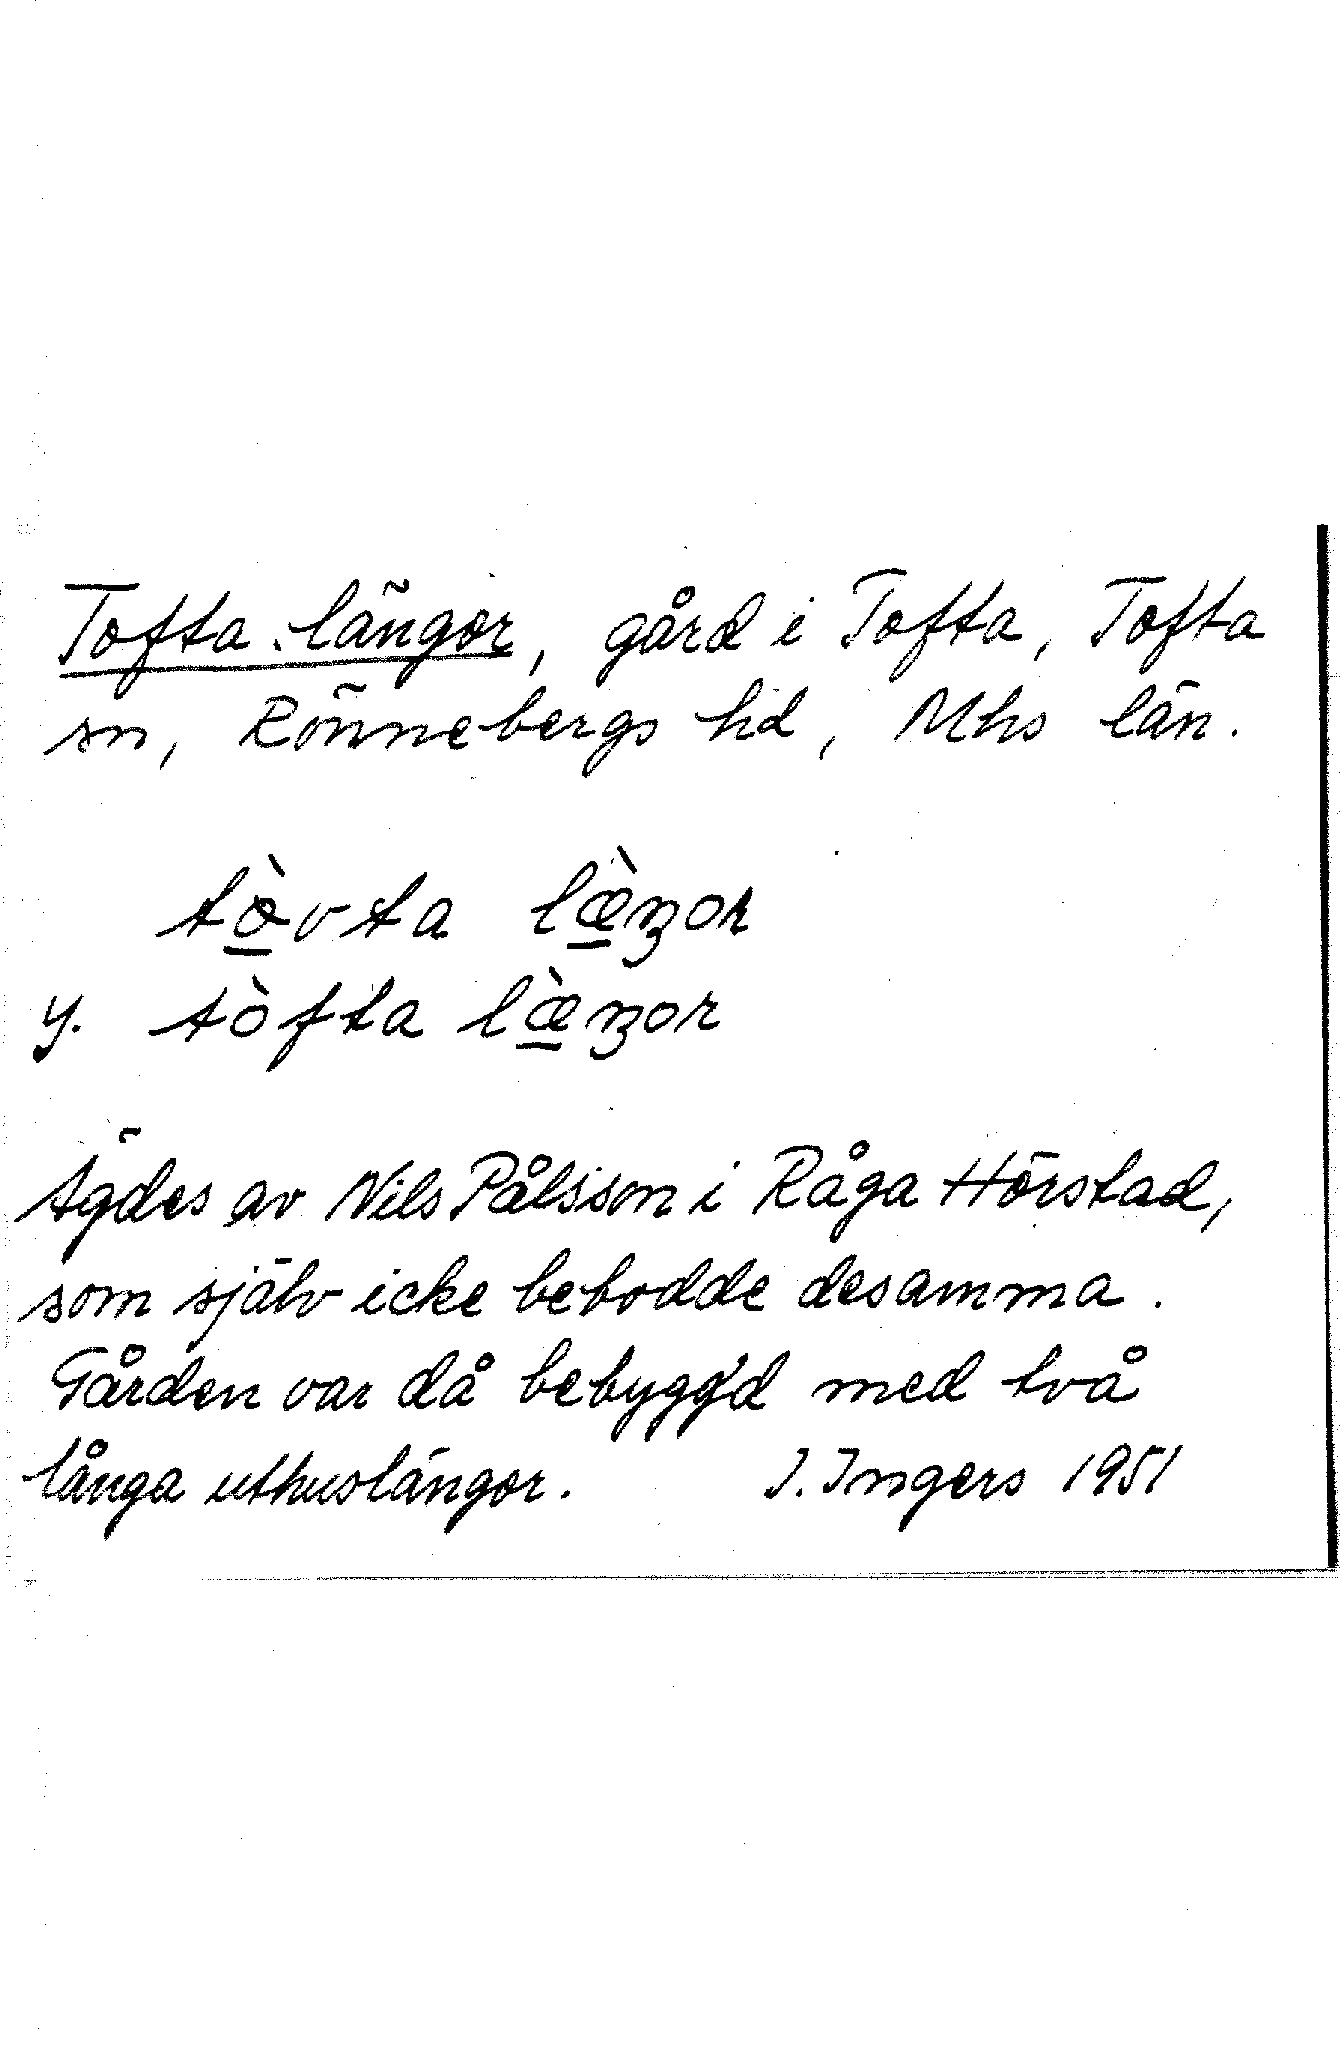 Tofta längor, gård i Tofta, Tofta
sn, Rönnebergs hd, Mhs län.
tò̠vta læ̠̀ŋor
y. tòfta læ̠̀ŋor
Ägdes av Nils Pålsson i Råga Hörstad,
som själv icke bebodde desamma.
Gården var då bebyggd med två
långa uthuslängor. I. Ingers 1951